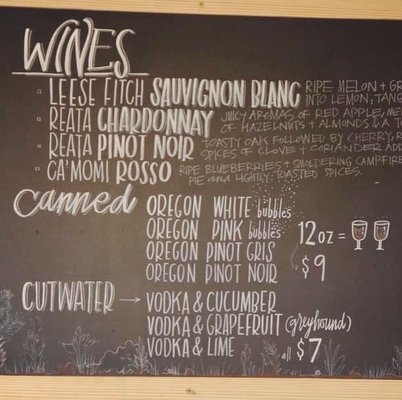 WINES
LEESE FITCH SAUVIGNON BLANC RIPE MELON + GR
INTO LEMON, TANG
REATA CHARDONNAY JUICY AROMAS OF RED APPLE, ME
OF HAZELNUTS + ALMONDS
REATA PINOT NOIR TOASTY OAK FOLLOWED BY CHERRY, R
SPICES OF CLOVE + CORIANDER ADD
CA'MOMI ROSSO RIPE BLUEBERRIES + SMOLDERING CAMPFIRE
PIE and LIGHTLY TOASTED SPICES.
Canned
OREGON WHITE bubbles
OREGON PINK bubbles
OREGON PINOT GRIS
OREGON PINOT NOIR
12oz =
$9
CUTWATER → VODKA & CUCUMBER
VODKA & GRAPEFRUIT (greyhound)
VODKA & LIME all $7